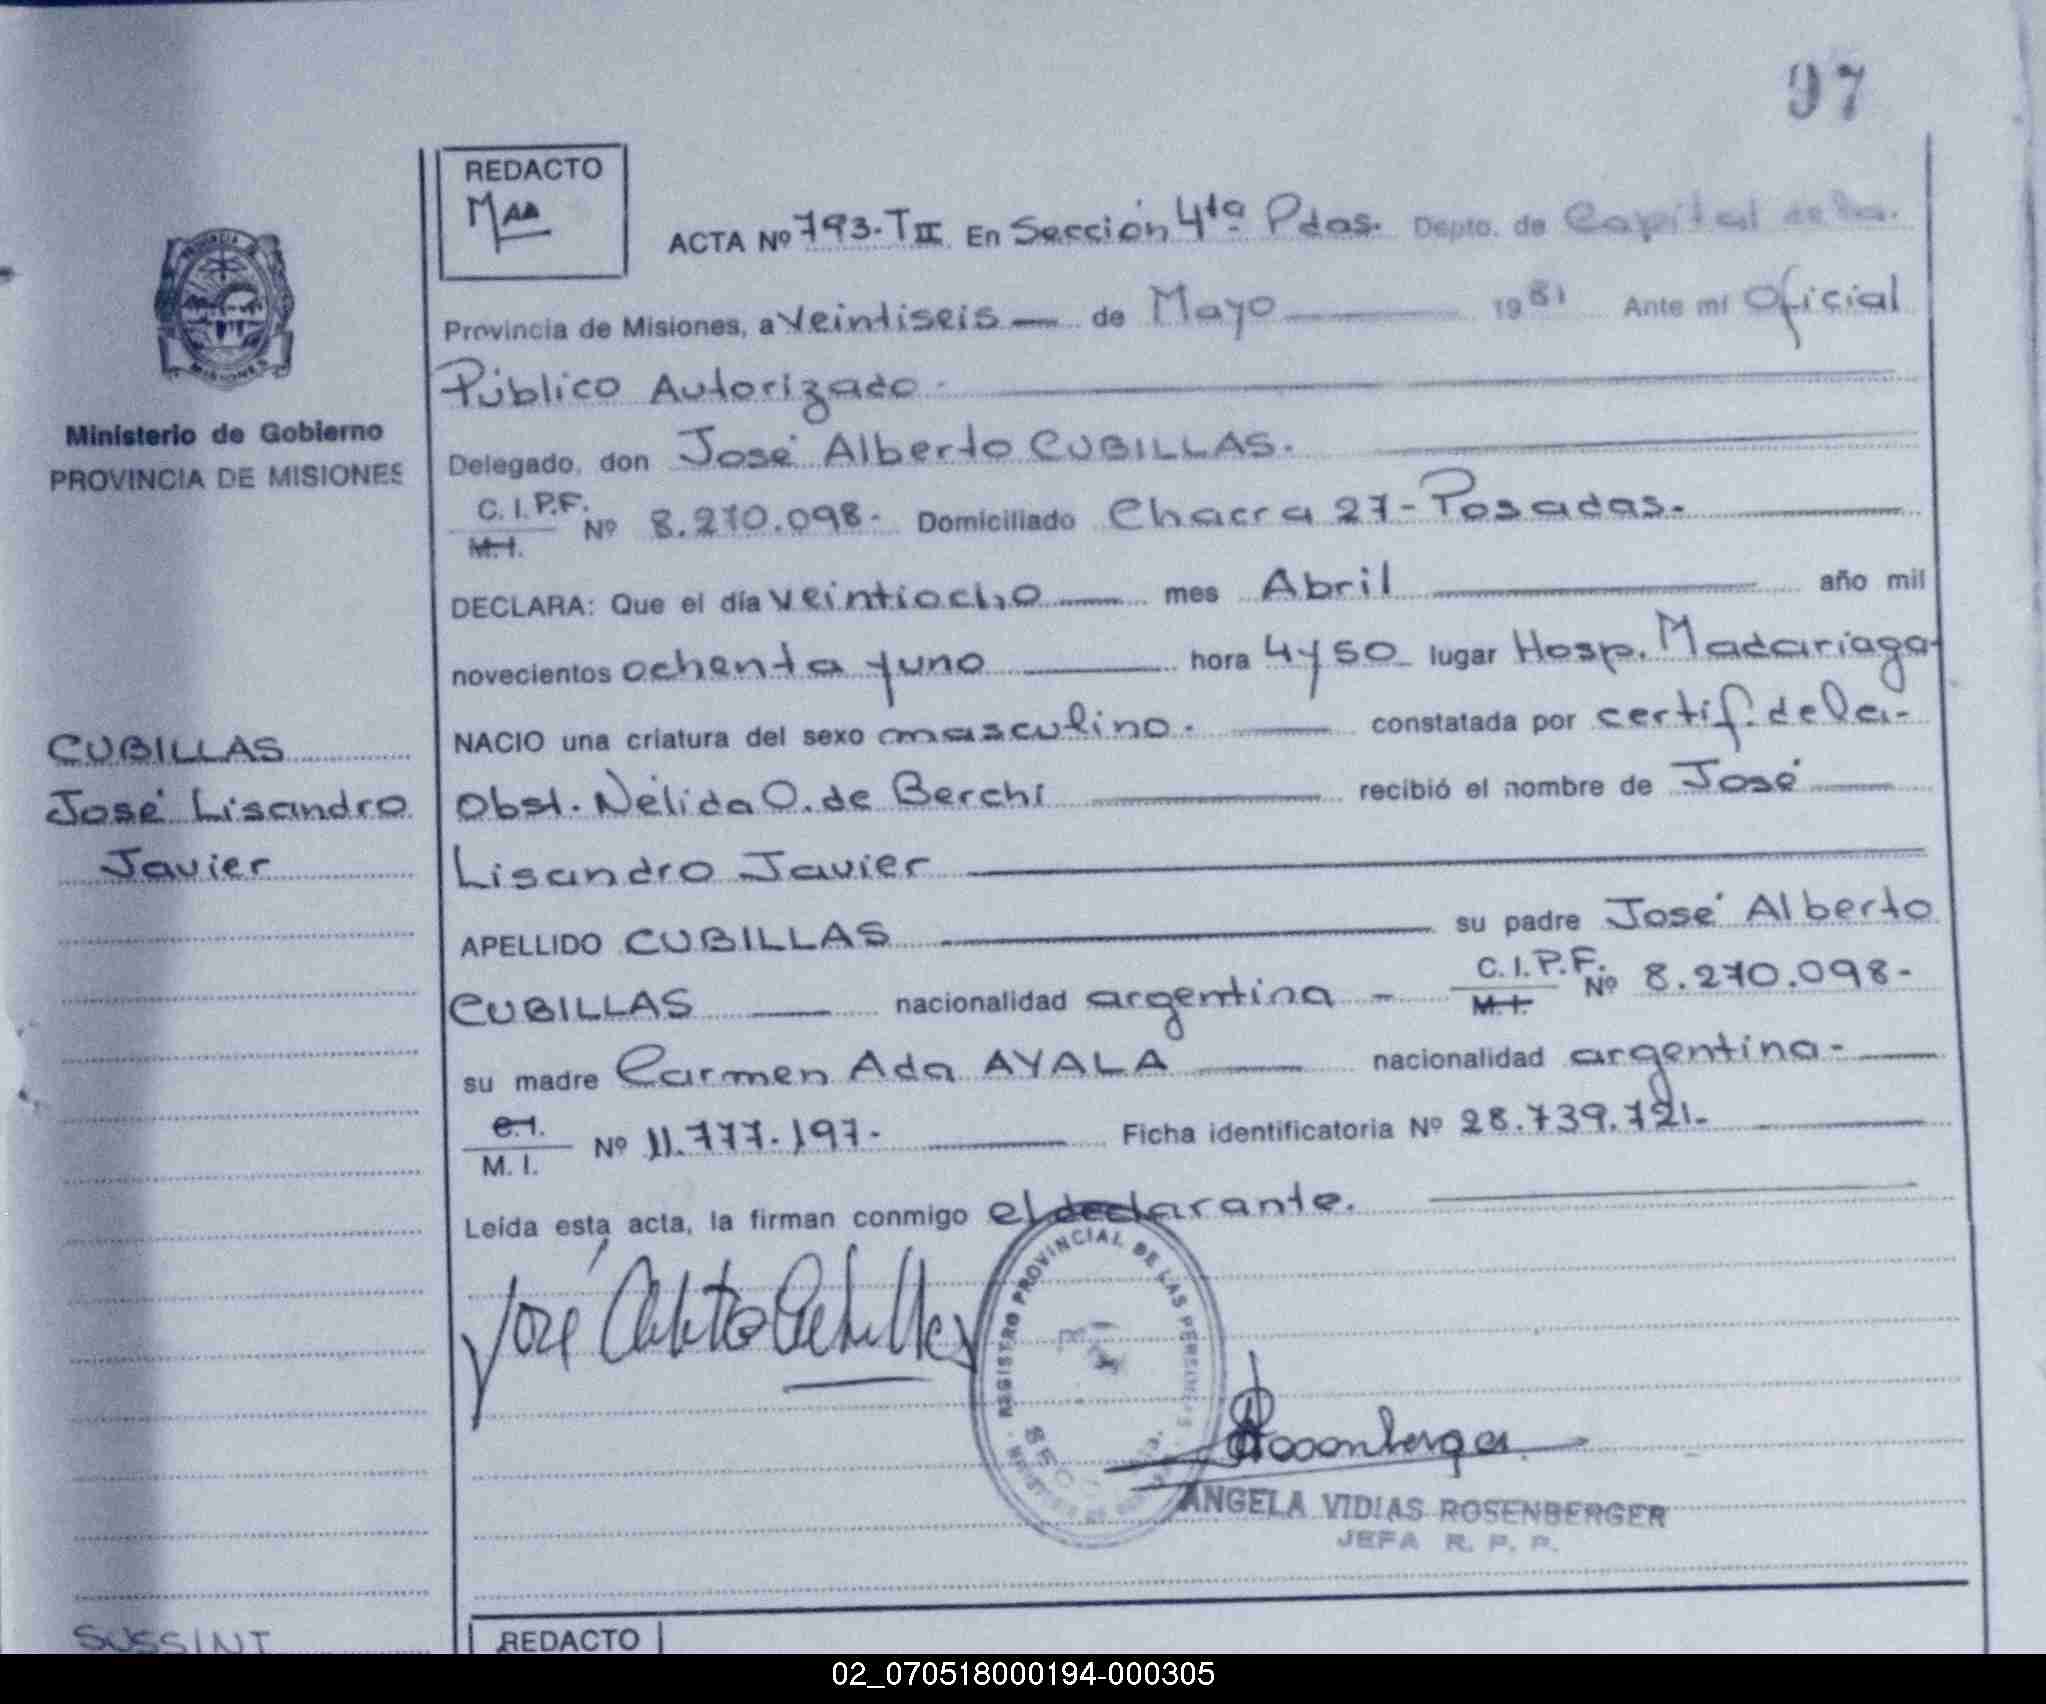 97
REDACTO
Maa
ACTA Nº 793-TII En Sección 4ta Pdas. Depto. de Capital de la
Provincia de Misiones, a veintiseis de Mayo 1981 Ante mí Oficial
Público Autorizado.
Ministerio de Gobierno
PROVINCIA DE MISIONES
Delegado, don José Alberto CUBILLAS.
C.I.P.F.
M.I. Nº 8.270.098- Domiciliado Chacra 27-Posadas.
DECLARA: Que el día veintiocho mes Abril año mil
novecientos ochenta y uno hora 4 y 50 lugar Hosp. Madariaga-
NACIO una criatura del sexo masculino. constatada por certif. de la-
Obst. Nélida O. de Berchi recibió el nombre de José
Lisandro Javier
CUBILLAS
José Lisandro
Javier
APELLIDO CUBILLAS su padre José Alberto
CUBILLAS nacionalidad argentina - C.I.P.F.
M.I. Nº 8.270.098-
su madre Carmen Ada AYALA nacionalidad argentina-
C.I.
M.I. Nº 11.777.197- Ficha identificatoria Nº 28.739.721-
Leída esta acta, la firman conmigo el declarante.
José Alberto Cubillas
REGISTRO PROVINCIAL DE LAS PERSONAS
Rosenberger
ANGELA VIDIAS ROSENBERGER
JEFA R. P. P.
SUSSINI
REDACTO
02_070518000194-000305